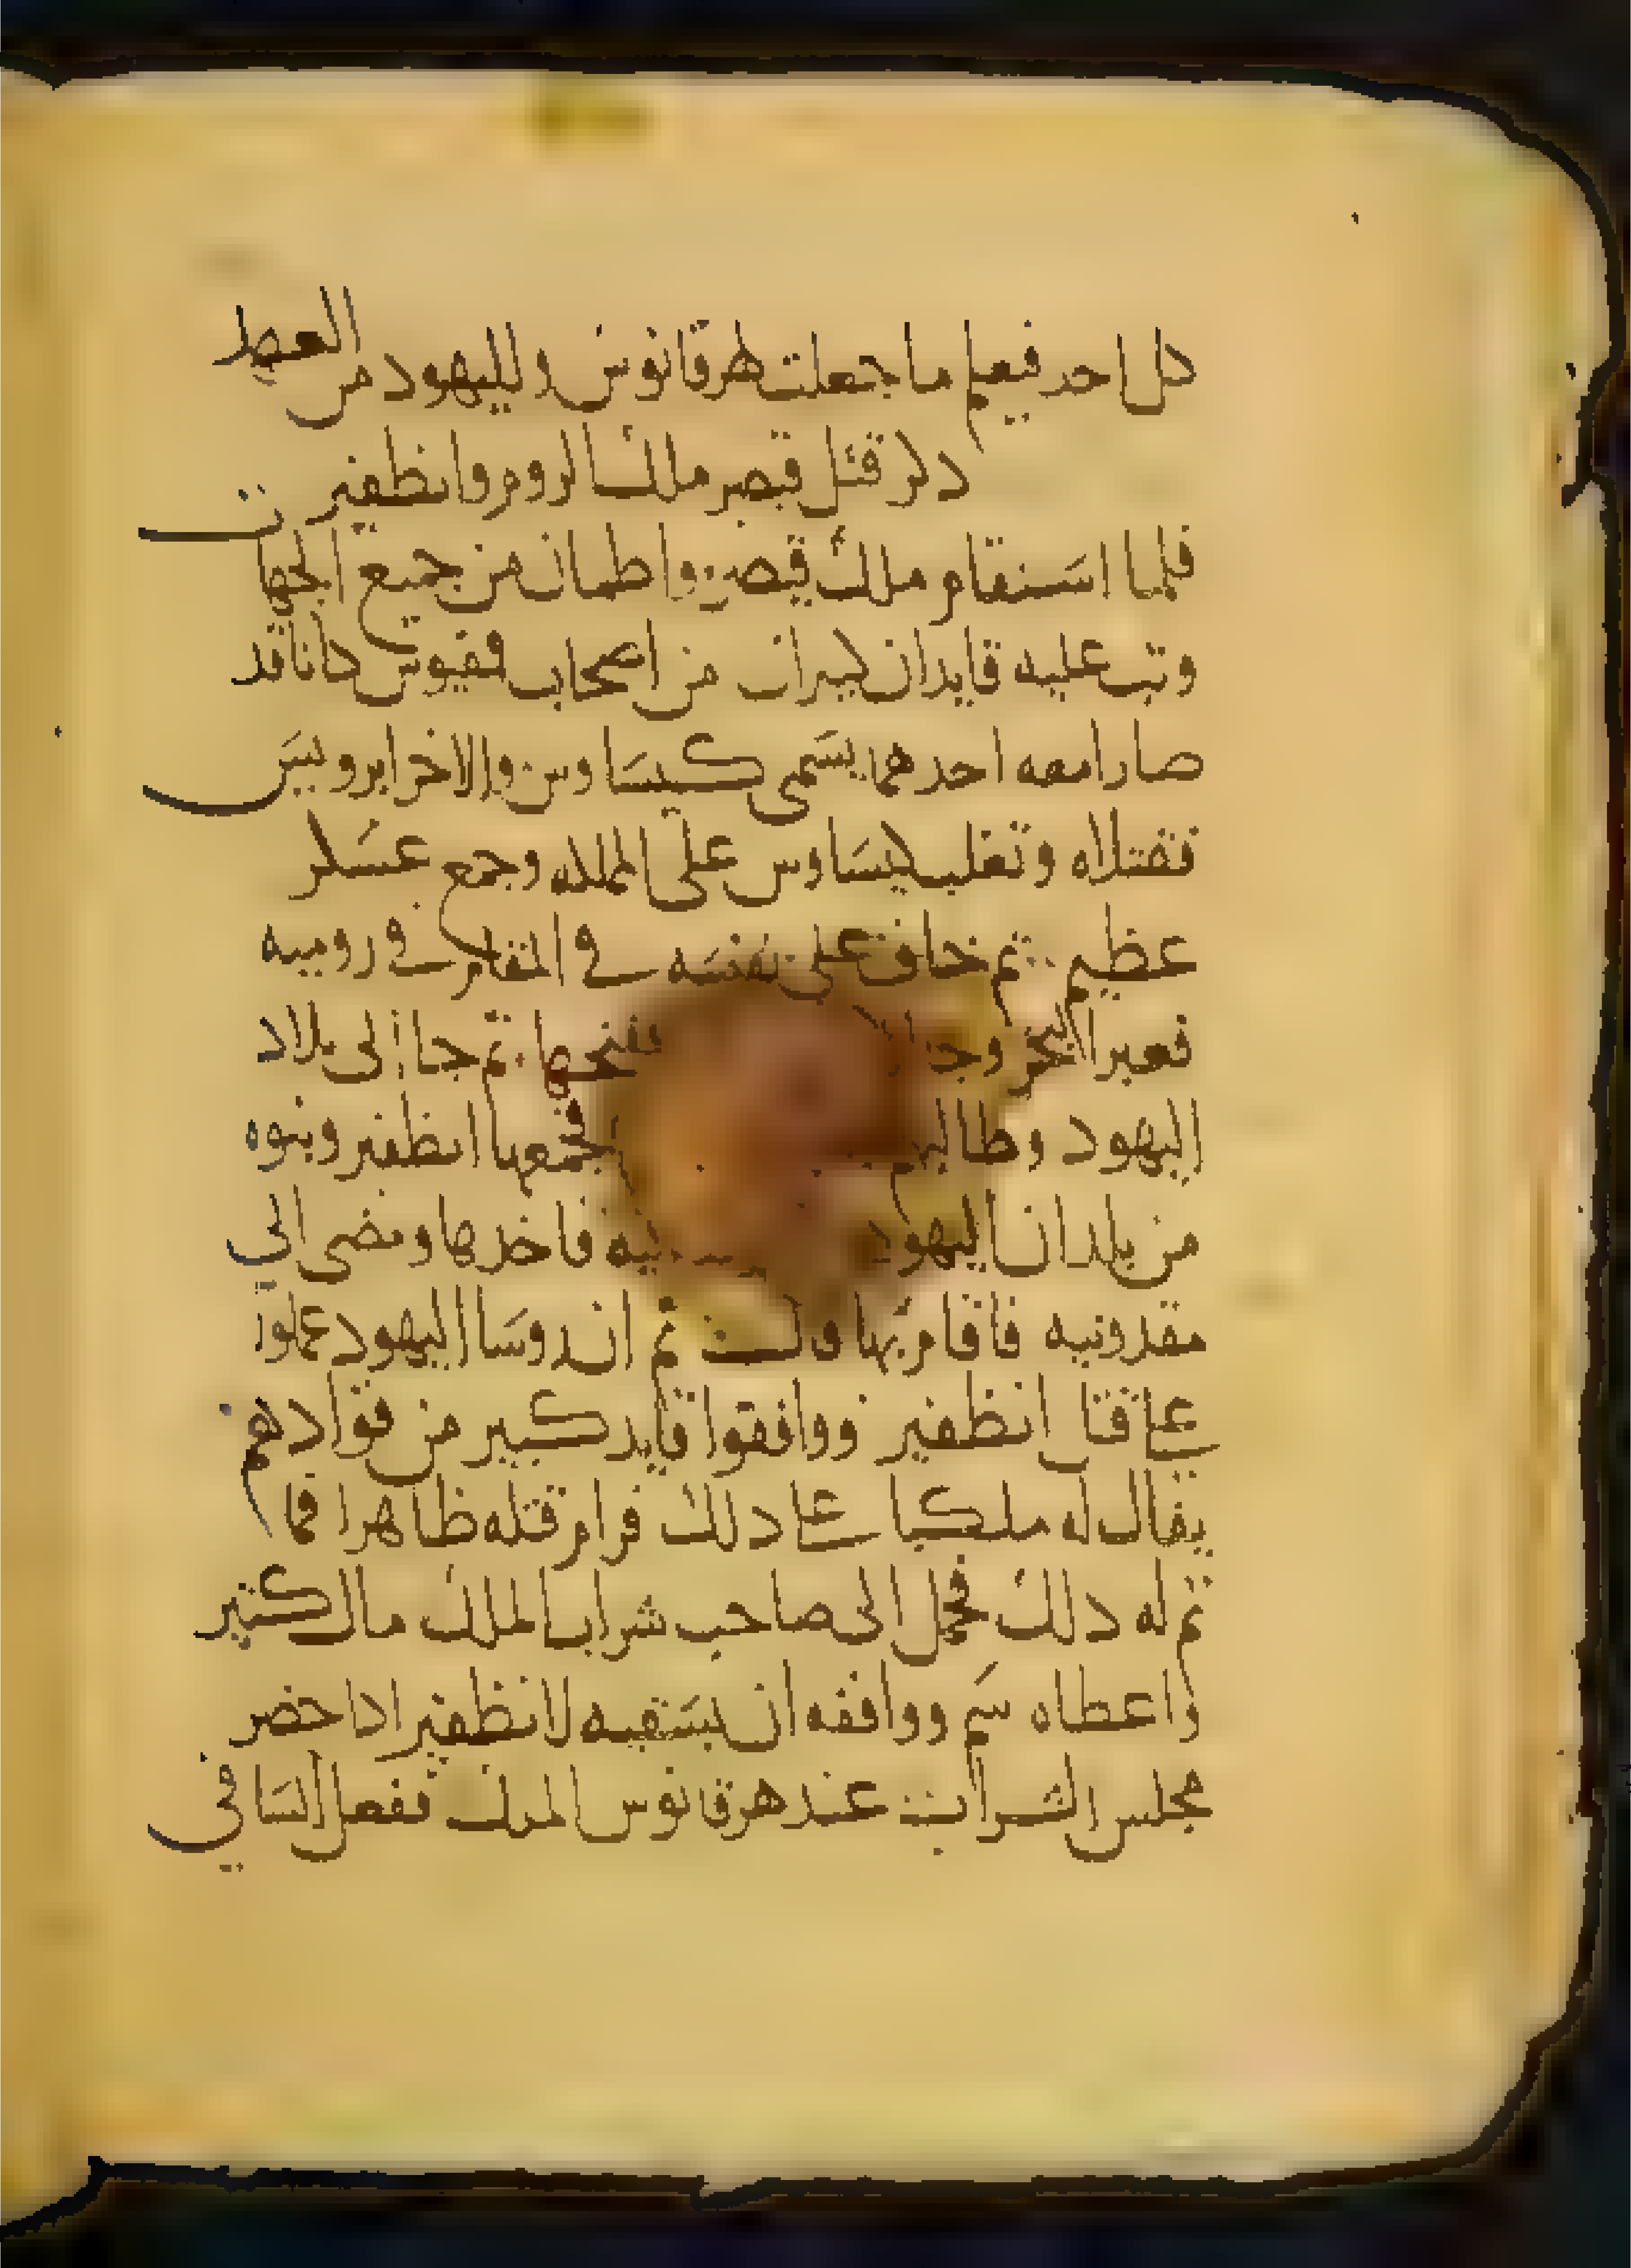 كل احد فيعلم ما جعلت لهرقانوس ولليهود من العطا
ذكر قتل قيصر ملك الروم وانطفير
فلما استقام ملك قيصر واطمان من جميع الجهات
وثب عليه قايدان كبيران من اصحاب فمفيوس كانا قد
صارا معه احدهما يسمى كيساوس والاخر ابروييس
فقتلاه وتغلب كيساوس على المملكه وجمع عسكر
عظيم ثم خاف على نفسه في المقام في روميه
فعبر البحر وجا الى ففتحها ثم جا الى بلاد
اليهود وطالبهم فجمعها انطفير وبنوه
من بلدان اليهود فاخدها ومضى الى
مقدونيه فاقام بها ثم ان روسا اليهود عملوا
على قتل انطفير ووافقوا قايد كبير من قوادهم
يقال له ملكيا على دلك فرام قتله ظاهرا فما
تم له دلك فحمل الى صاحب شراب الملك مال كثير
واعطاه سم ووافقه ان يسقيه لانطفير ادا حضر
مجلس الشراب عند هرقانوس الملك ففعل الساقي